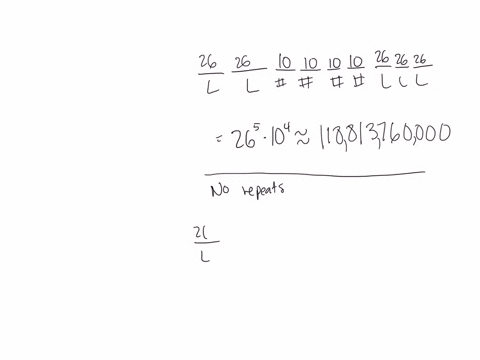 26 26 10 10 10 10 26 26 26
L L # # # # L L L
= 26⁵·10⁴ ≈ 118,813,760,000
No repeats
26
L